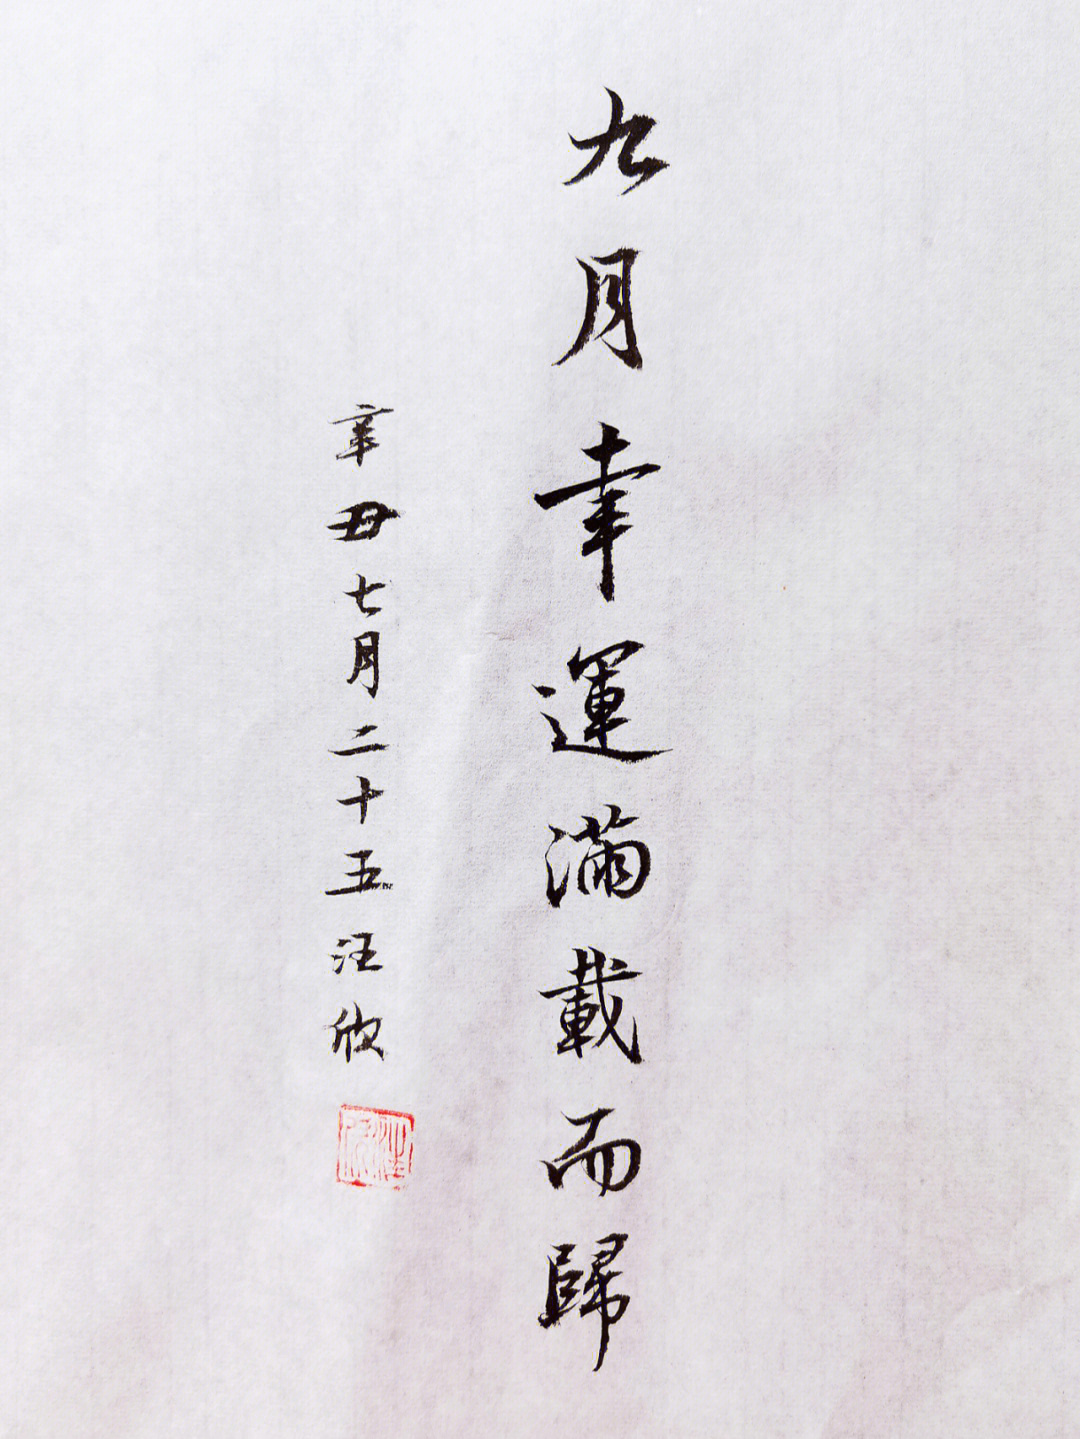 九月幸運滿載而歸
辛丑七月二十五汪欣